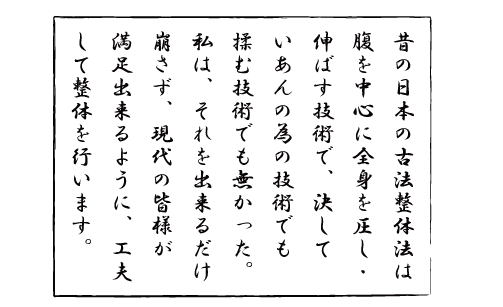 昔の日本の古法整体法は
腹を中心に全身を圧し・
伸ばす技術で、決して
いあんの為の技術でも
揉む技術でも無かった。
私は、それを出来るだけ
崩さず、現代の皆様が
満足出来るように、工夫
して整体を行います。